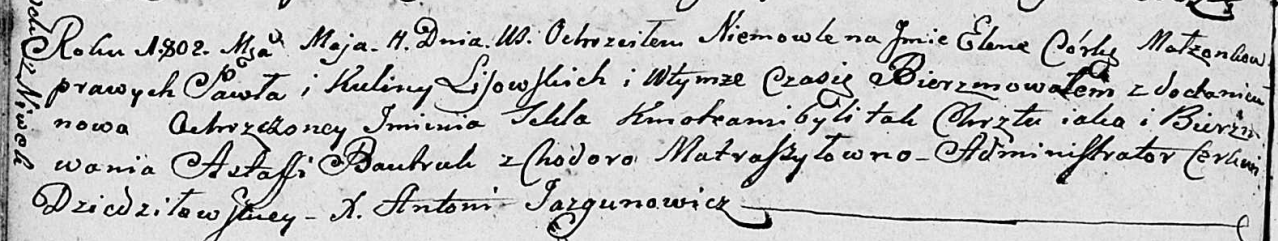 Roku 1802. Mca Maja. 11. Dnia. Ochrzciłem Niemowle na Jmie Elenę Córkę Małżonkow
prawych Pawła i Kuliny Lisowskich i Wtymże Czasię Bierzmowałem z dodaniem
nowo Ochrzczoney Jmienia Tekla Kmotrami byli tak Chrztu iako i Bierzm
wania Astaffi Bautruk z Chodoro Matraszyłowno - Administrator Cerkwi
Dziedziłowskiey - X. Antoni Jazgunowicz
z Niwek